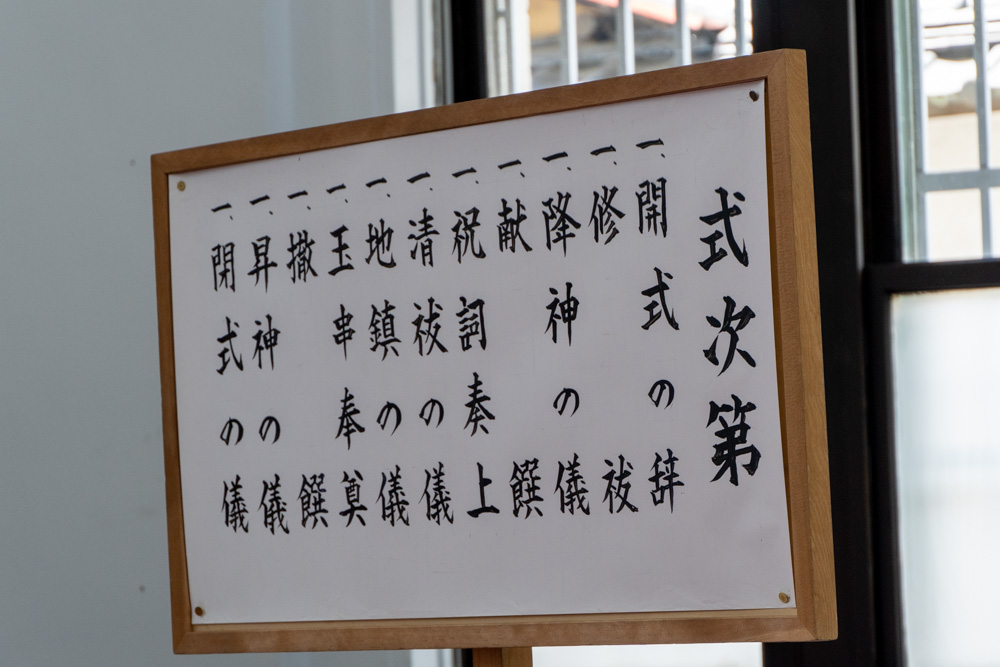 式次第
一、開式の辞
一、修祓
一、降神の儀
一、献饌
一、祝詞奏上
一、清祓の儀
一、地鎮の儀
一、玉串奉奠
一、撒饌
一、昇神の儀
一、閉式の儀